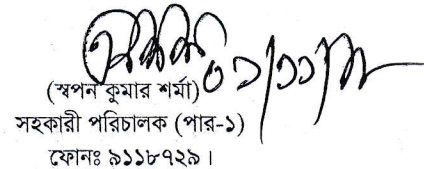 (স্বপন কুমার শর্মা)
সহকারী পরিচালক (পার-১)
ফোনঃ ৯১১৮৭২৯।